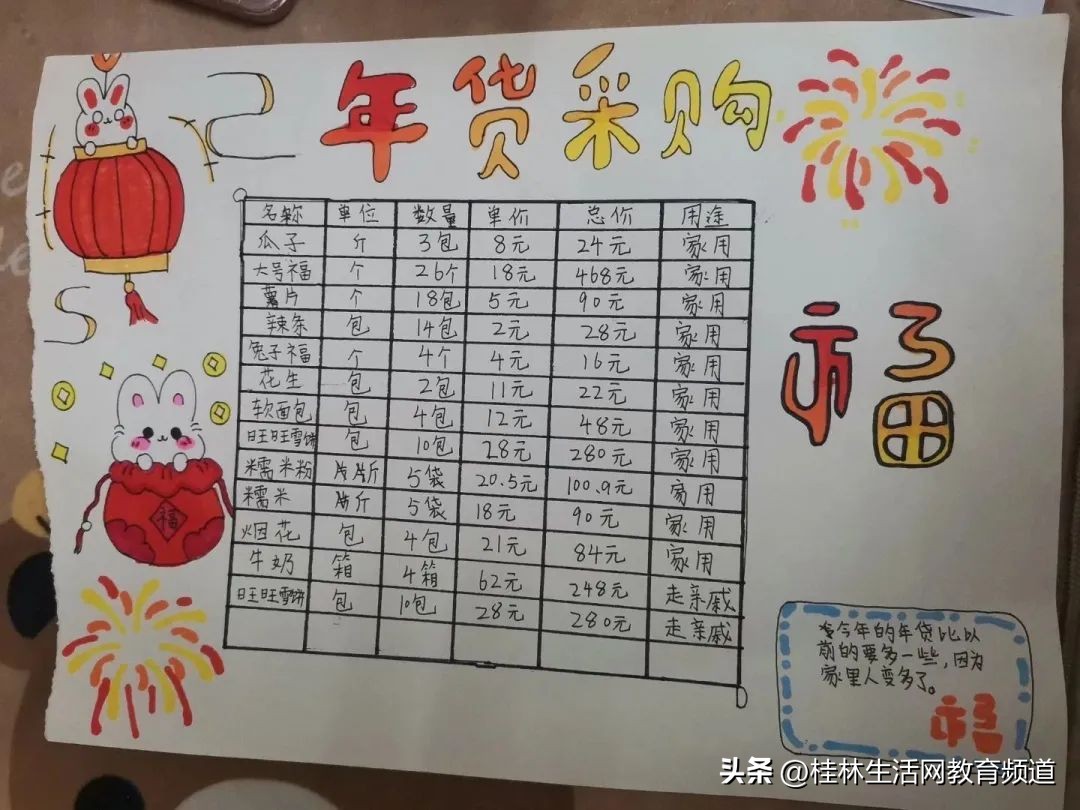 年货采购
名称 单位 数量 单价 总价 用途
瓜子 斤 3包 8元 24元 家用
大号福 个 26个 18元 468元 家用
薯片 个 18包 5元 90元 家用
辣条 包 14包 2元 28元 家用
兔子福 个 4个 4元 16元 家用
花生 包 2包 11元 22元 家用
软面包 包 4包 12元 48元 家用
旺旺雪饼 包 10包 28元 280元 家用
糯米粉 斤 5袋 20.5元 100.9元 家用
糯米 斤 5袋 18元 90元 家用
烟花 包 4包 21元 84元 家用
牛奶 箱 4箱 62元 248元 走亲戚
旺旺雪饼 包 10包 28元 280元 走亲戚
福
福
今年的年货比以
前的要多一些,因为
家里人变多了。
福
头条 @桂林生活网教育频道